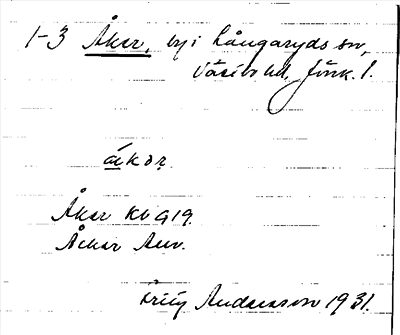 1-3 Åker, by i Långaryds sn,
Västbo hd. Jönk. l.
åkər
Åker Kb 919.
Åcker Anv.
Fritz Andersson 1931.